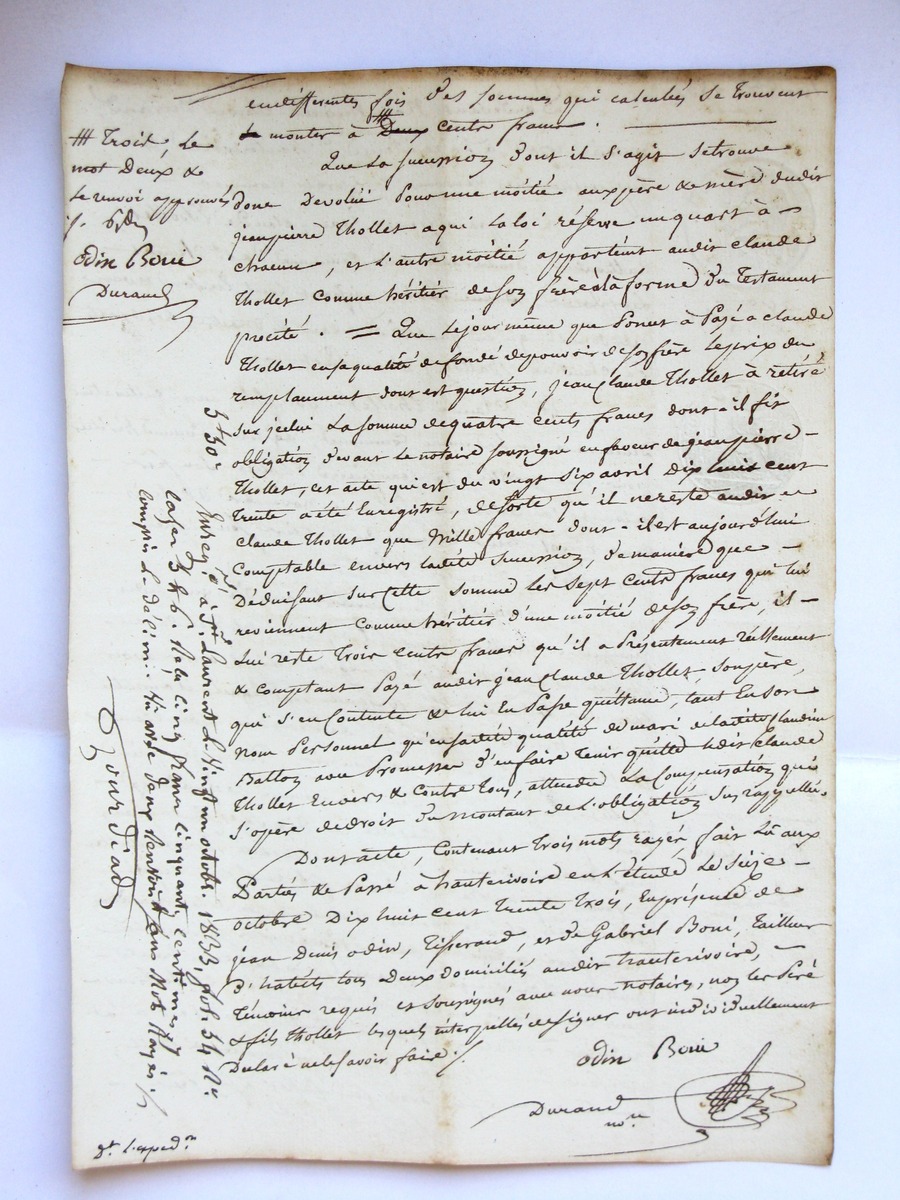 en differentes fois des sommes qui calculées se trouvent
monter à Deux cents francs.
Que la succession dont il s'agit se trouve
donc Dévolue pour une moitié aux père & mère dudit
jean pierre Thollet a qui la loi réserve un quart à
chacun, et l'autre moitié appartient audit claude
Thollet comme héritier de son frère à la forme du Testament
précité. = Que le jour même que Ponet à Payé a claude
Thollet en sa qualité de fondé de pouvoir de son frère le prix du
remplacement dont est question, jean Claude Thollet à retiré
sur icelui la somme de quatre cents francs dont il fit
obligation devant le notaire soussigné en faveur de jean pierre
Thollet, cet acte qui est du vingt six avril Dix huit cent
Trente a été Enregistré, de sorte qu'il ne reste audit
claude Thollet que Mille francs dont il est aujourd'hui
Comptable envers ladite succession, de manière que
Déduisant sur Cette somme les Sept Cents francs qui lui
reviennent comme héritier d'une moitié de son frère, il
lui reste Trois Cents francs qu'il a Présentement réellement
& comptant Payé audit jean Claude Thollet, son père,
qui s'en Contente & lui En Passe quittance, tant En son
nom Personnel qu'en sa dite qualité de mari de ladite Claudine
Balloz avec Promesse d'en faire Tenir quitte ledit Claude
Thollet Envers & Contre tous, attendu la Compensation qui
s'opère de droit du montant de l'obligation sus rappellée.
Dont acte, Contenant Trois mots rayés fait lu aux
Parties & Passé à hauterivoire en l'étude le Seize
octobre Dix huit cent Trente Trois, En présence de
jean Denis odin, Tisserand, et de Gabriel Boni, Tailleur
d'habits tous Deux domiciliés audit hauterivoire,
Témoins requis et soussignés avec nous notaires, non les Père
& fils Thollet lesquels interpellés de signer ont individuellement
Déclaré ne le savoir faire ./.
odin Boni
Durand
no.re
Trois, le
mot Deux &
le renvoi approuvés
odin Boni
Durand
5f 50c
Enreg.é à St Laurent le Vingt un octobre 1833, fol. 54 R.o
cases 5 & 6. Reçu cinq francs cinquante centimes
compris le décime.
d.t l'exped.on